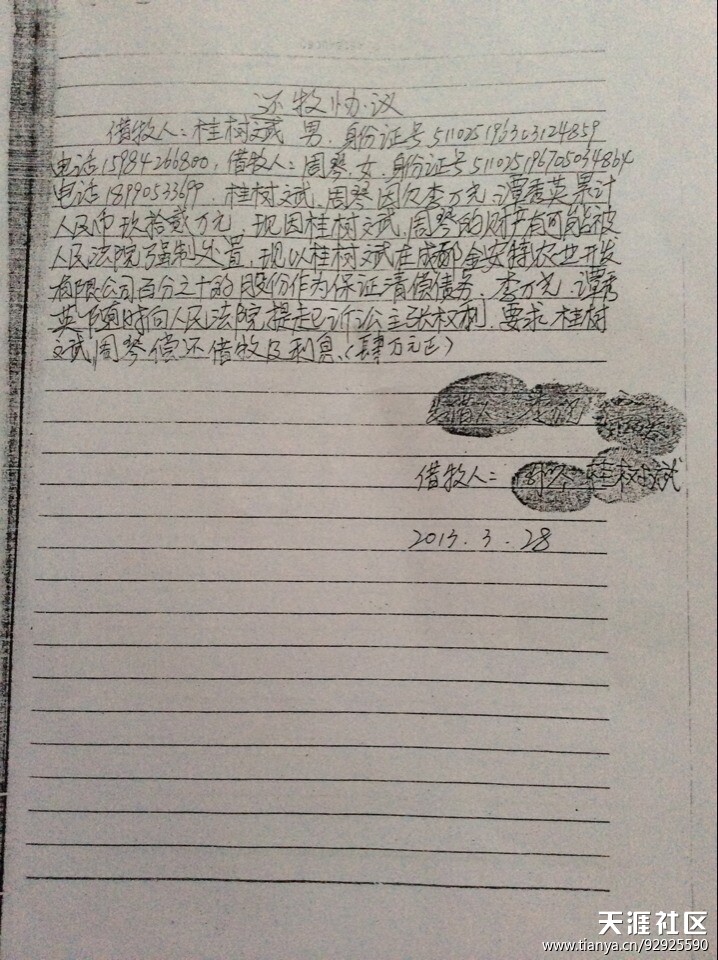 还款协议
借款人：桂树斌 男．身份证号511025196303124859
电话15984266800，借款人：周琴．女．身份证号51102519670503486X
电话18990533699．桂树斌、周琴因欠李万 谭秀英累计
人民币玖拾贰万元，现因桂树斌、周琴的财产有可能被
人民法院强制处置，现以桂树斌在成都金安特农业开发
有限公司百分之十的股份作为保证清偿债务．李万 谭秀
英 随时向人民法院提起诉讼主张权利．要求桂树
斌周琴偿还借款及利息．（肆万元正）
借款人：周琴 桂树斌
2013.3.28
天涯社区
www.tianya.cn/92925590